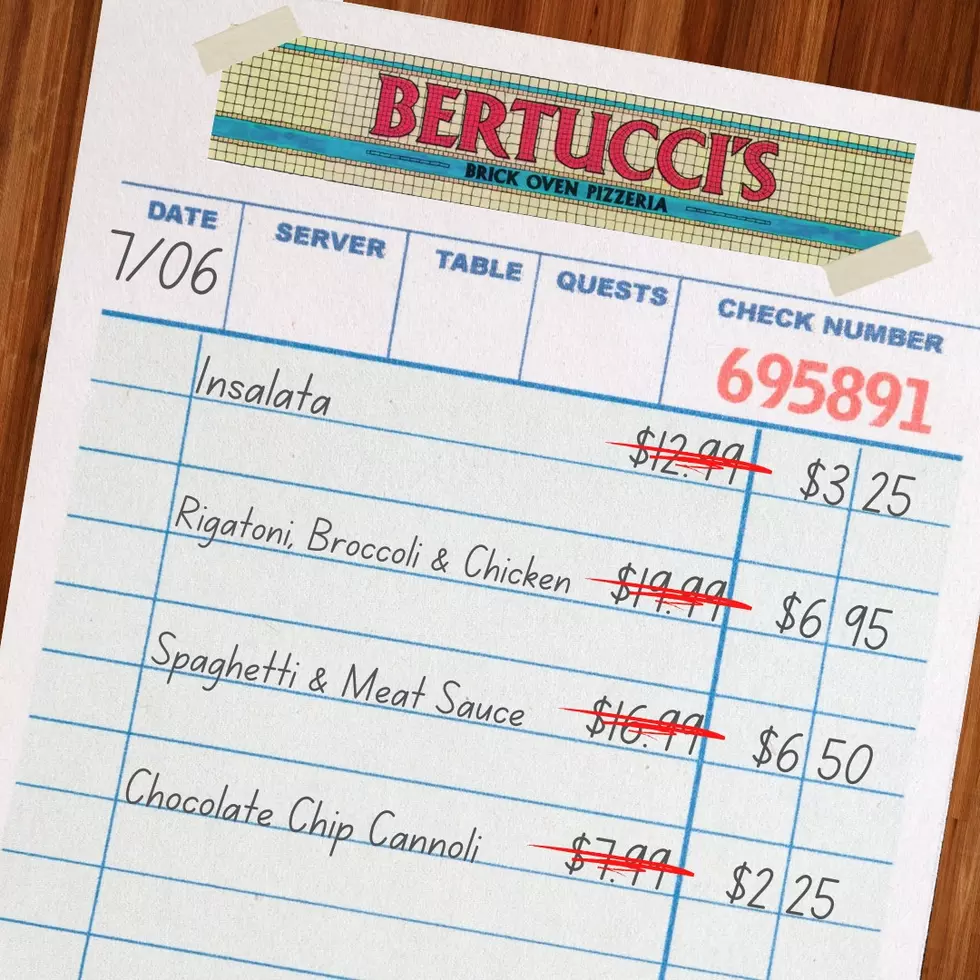 BERTUCCI'S
BRICK OVEN PIZZERIA
DATE SERVER TABLE QUESTS CHECK NUMBER
7/06 695891
Insalata $12.99 $3 25
Rigatoni, Broccoli & Chicken $19.99 $6 95
Spaghetti & Meat Sauce $16.99 $6 50
Chocolate Chip Cannoli $7.99 $2 25